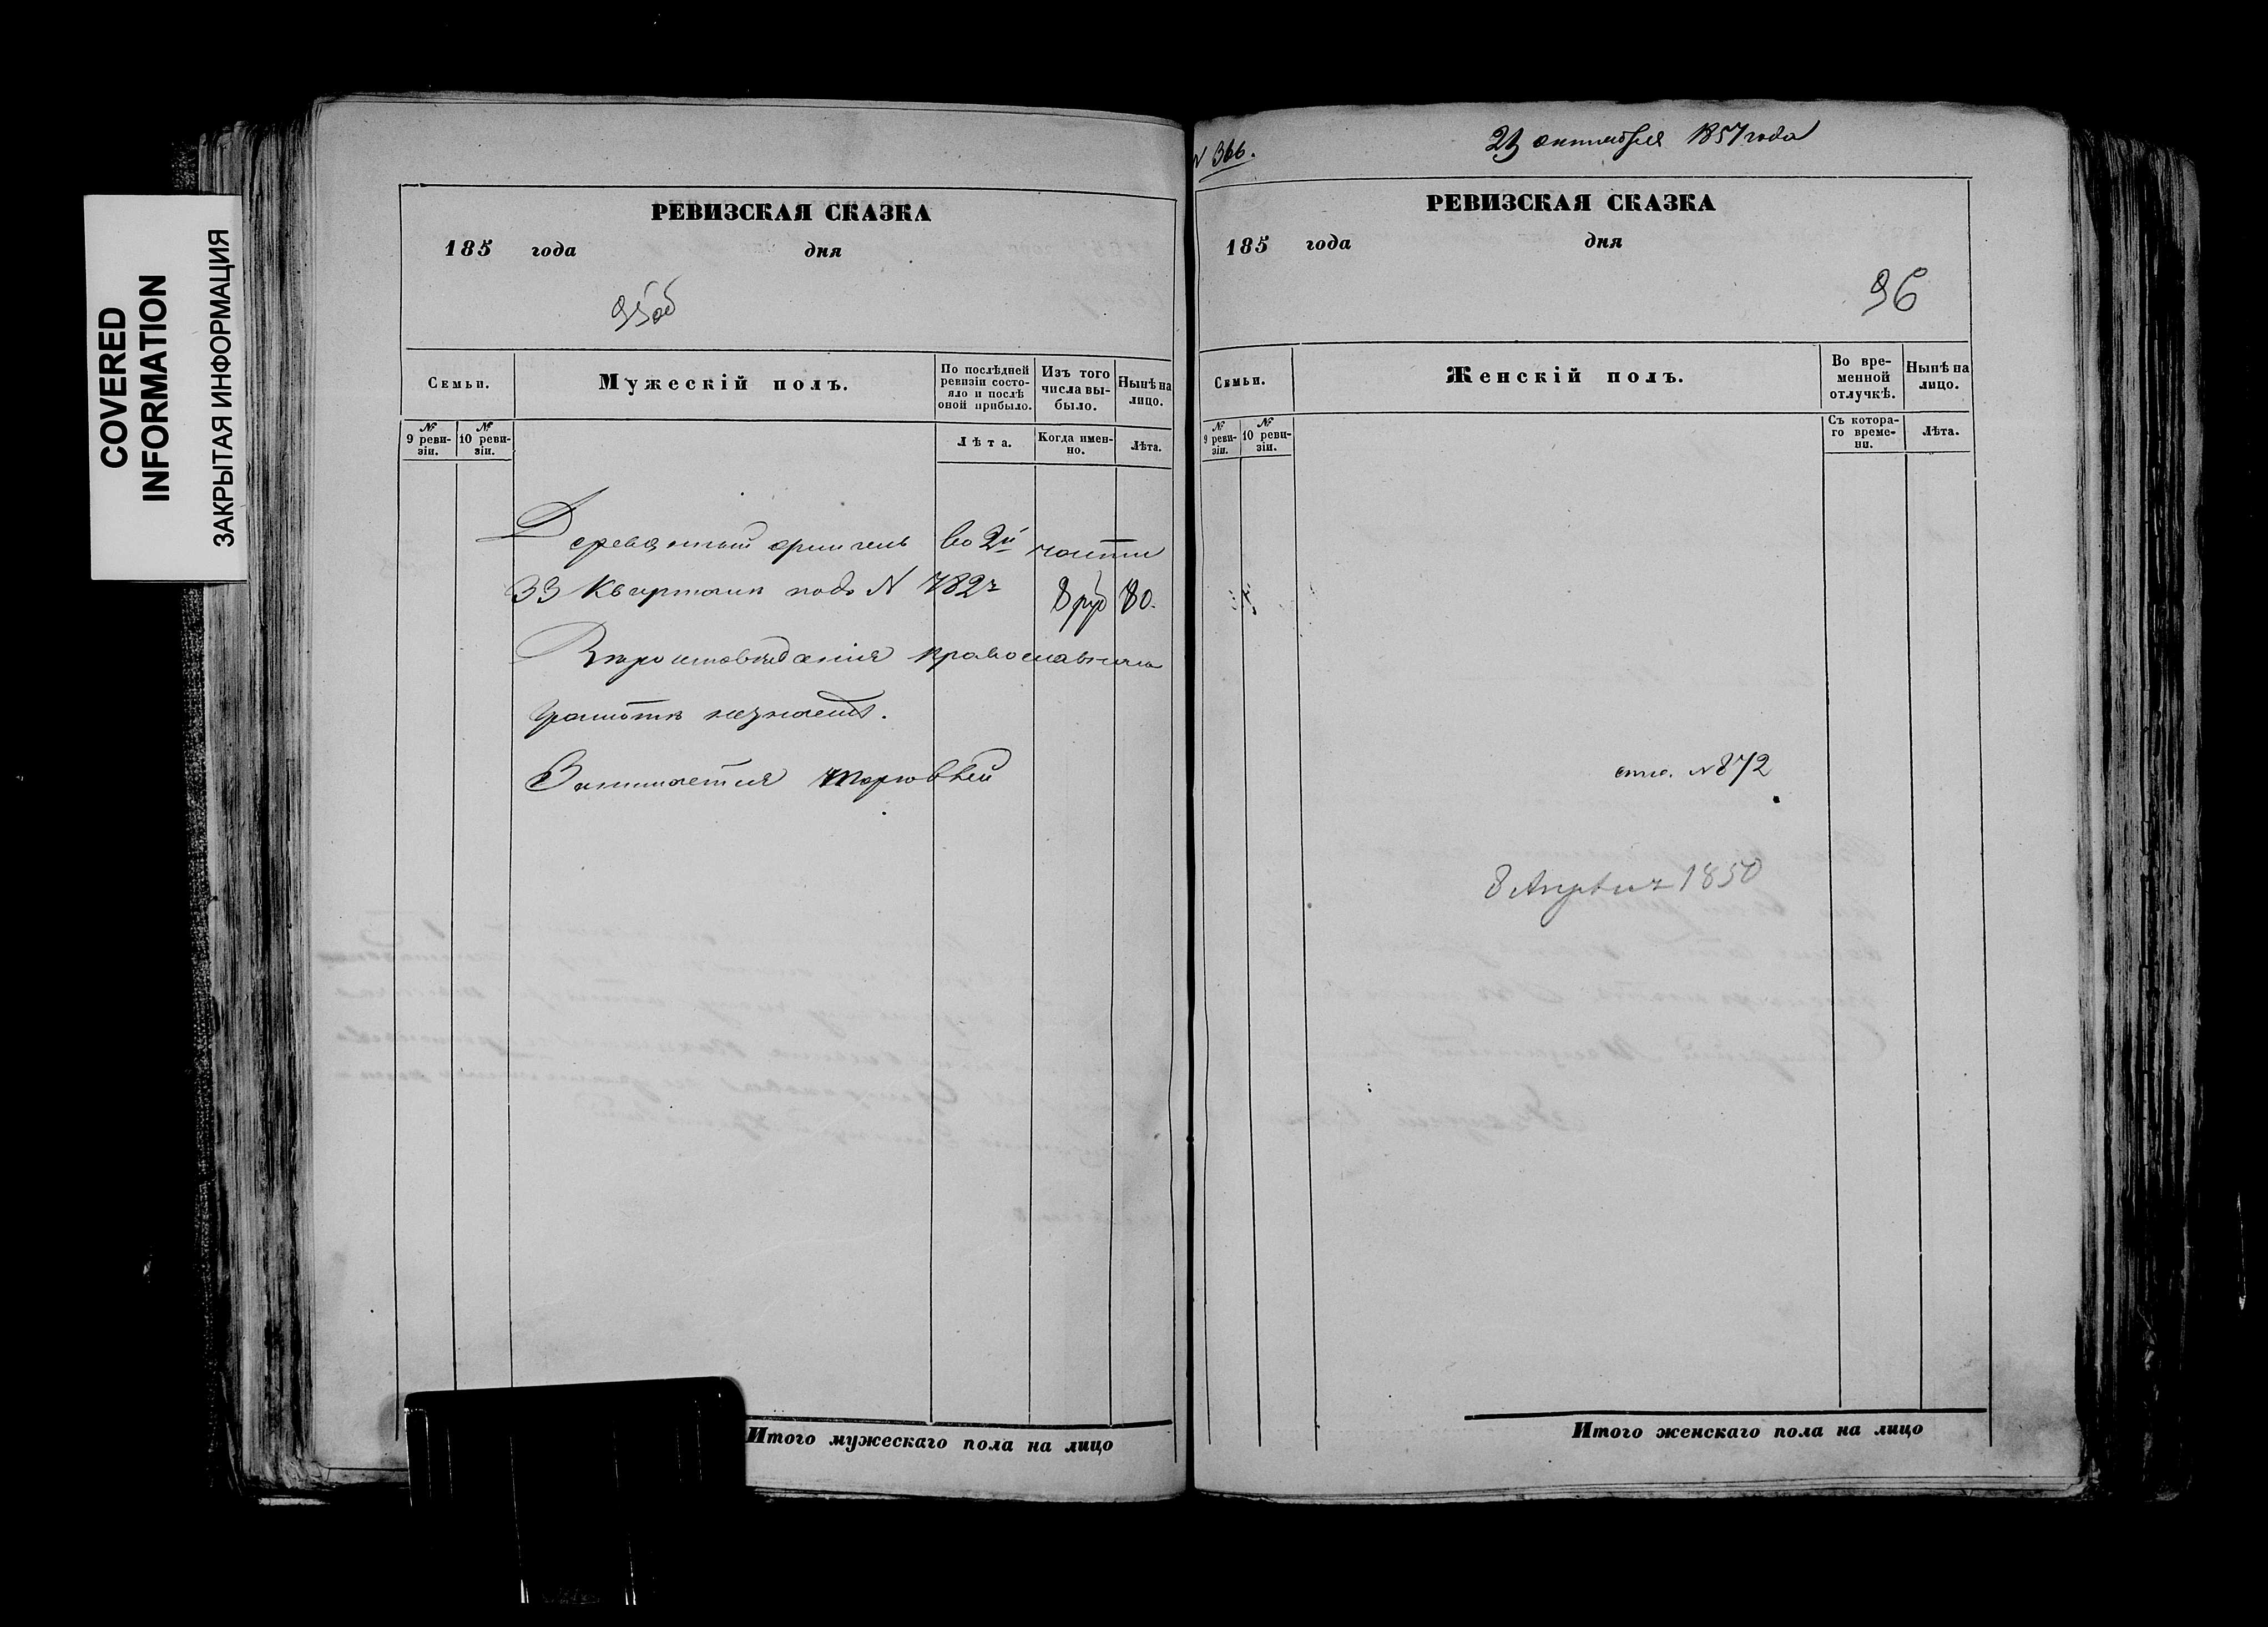 COVERED
INFORMATION
ЗАКРЫТАЯ ИНФОРМАЦИЯ
РЕВИЗСКАЯ СКАЗКА
185 года дня
95об
Семьи.
Мужескій полъ.
По послѣдней
ревизіи состо-
яло и послѣ
оной прибыло.
Изъ того
числа вы-
было.
Нынѣ на
лицо.
№
9 реви-
зіи.
№
10 реви-
зіи.
Лѣта.
Когда имен-
но.
Лѣта.
Деревянный флигель во 2й части
33 квартала подъ N 782м 8 руб 80.
Вѣроисповѣданія православнаго
грамотѣ незнаетъ.
Занимается торговлей
Итого мужескаго пола на лицо
N 366.
23 октября 1857 года
РЕВИЗСКАЯ СКАЗКА
185 года дня
96
Семьи.
Женскій полъ.
Во вре-
менной
отлучкѣ.
Нынѣ на
лицо.
№
9 реви-
зіи.
№
10 реви-
зіи.
Съ котора-
го време-
ни.
Лѣта.
N 872
8 Апрѣля 1850
Итого женскаго пола на лицо